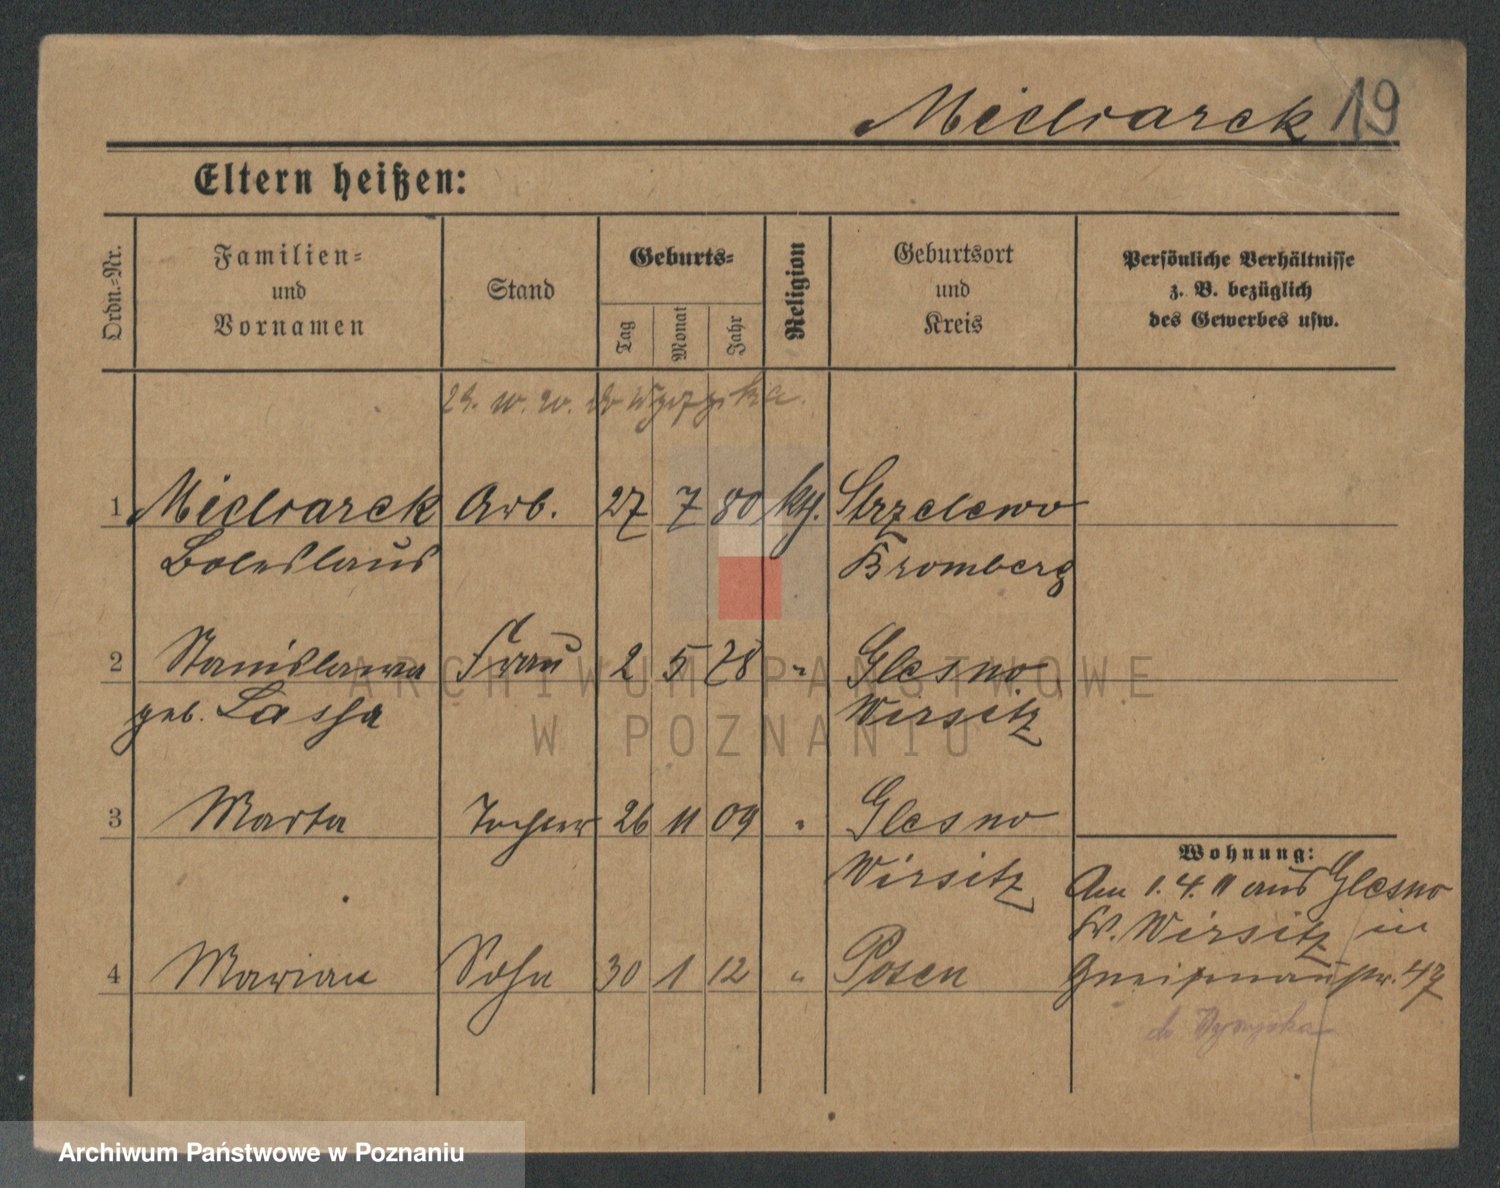 19
Eltern heißen:
Ordn.-Nr.
Familien-
und
Vornamen
Stand
Geburts-
Tag
Monat
Jahr
Religion
Geburtsort
und
Kreis
Persönliche Verhältnisse
z. B. bezüglich
des Gewerbes usw.
1 Arb. 27 7 80 kth. Strzelewo
Boleslaus Bromberg
2 Stanislawa Frau 2 5 78 " Glesno
geb. Wirsitz
3 Marta Tochter 26 11 09 " Glesno
Wirsitz
4 Marian Sohn 30 1 12 " Posen
Wohnung:
Am 1.4.11 aus Glesno
Kr. Wirsitz in
Gneisenaustr. 47
ARCHIWUM PAŃSTWOWE
W POZNANIU
Archiwum Państwowe w Poznaniu